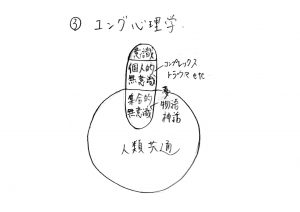 ③ ユング心理学.
意識
個人的
無意識
コンプレックス
トラウマ etc
集合的
無意識
夢
物語
神話
人類共通